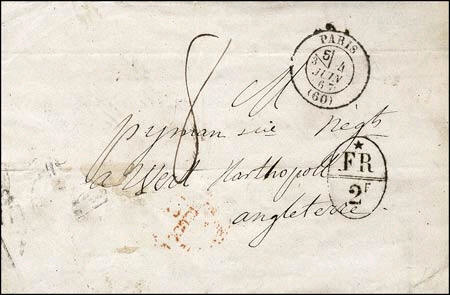 PARIS
5 4
3
JUIN
67
(60)
8
M
pyman sic Negt
a West Harthopool
angleterre
FR
2F